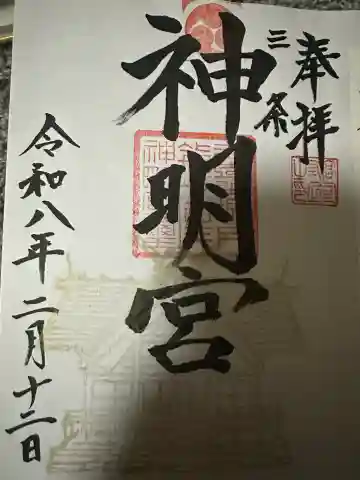 奉拝
三条
神明宮
令和八年二月十二日